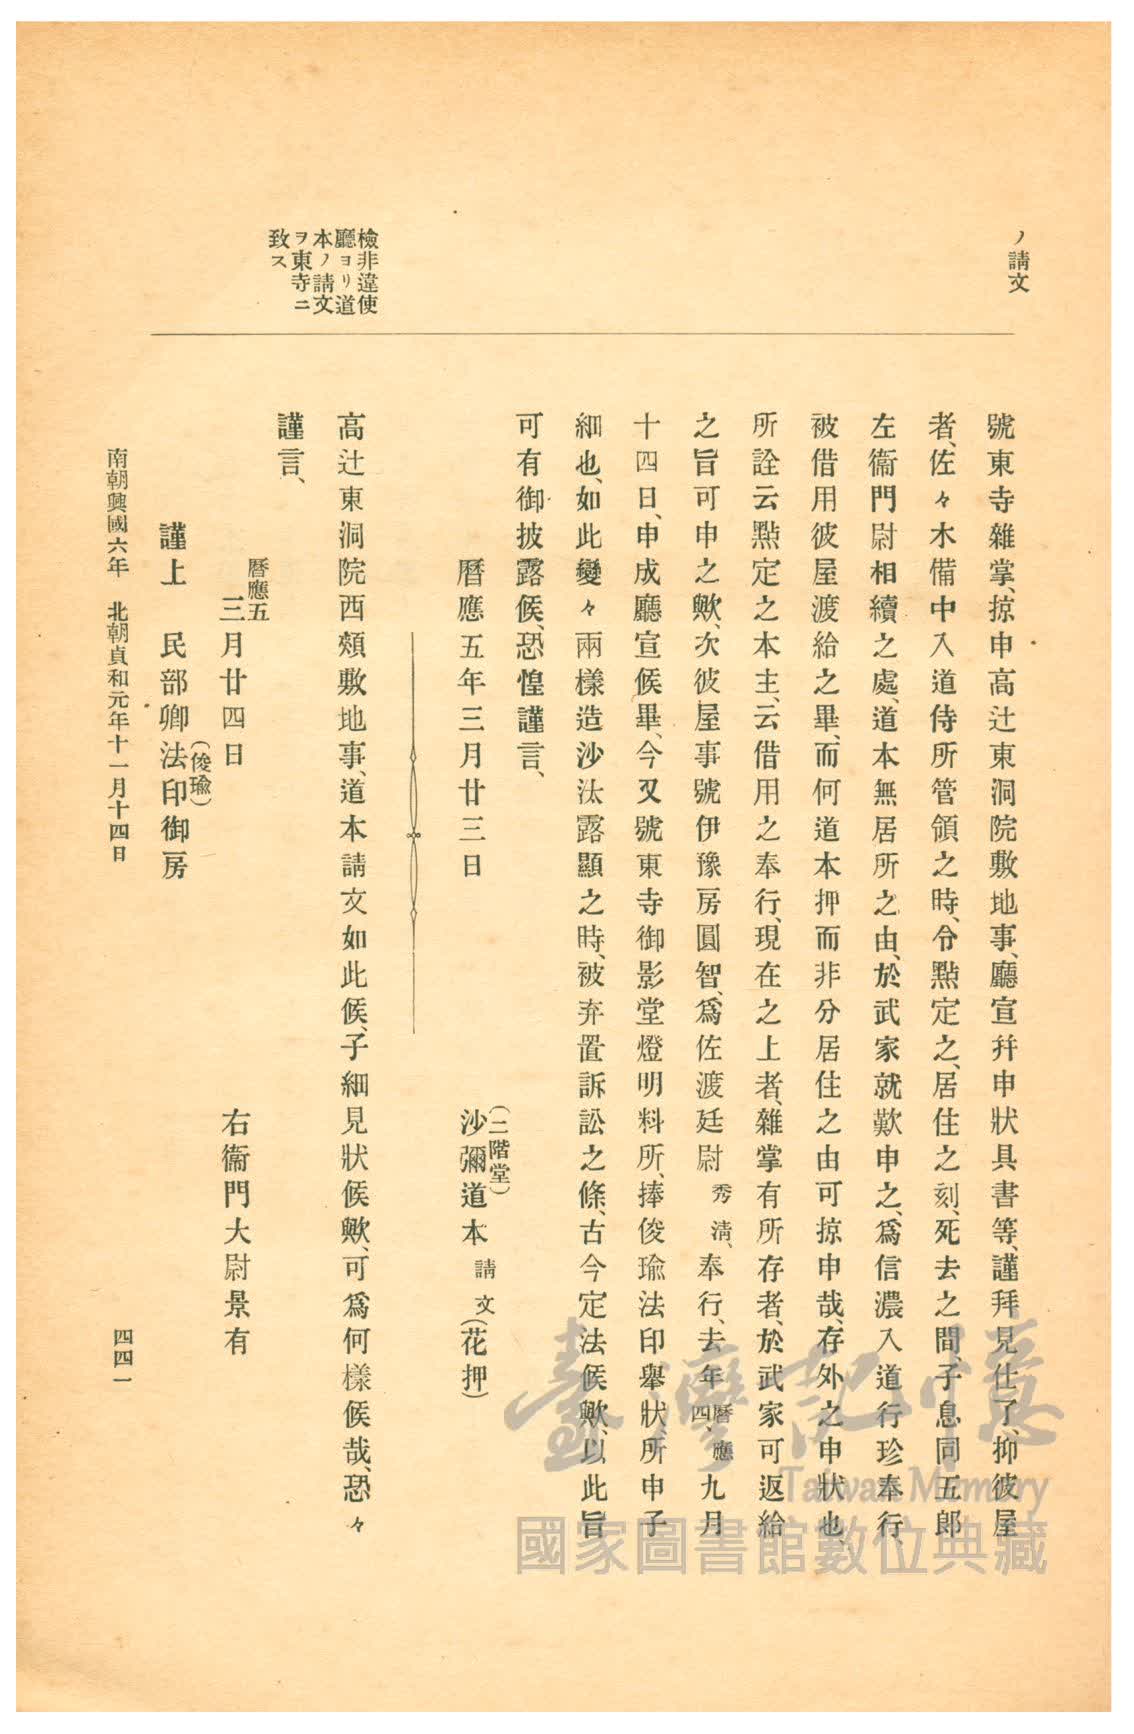 ノ請文
號東寺雜掌、掠申高辻東洞院敷地事、廳宣幷申狀具書等、謹拜見仕了、抑彼屋
者、佐々木備中入道侍所管領之時、令點定之、居住之刻、死去之間、子息同五郎
左衞門尉相續之處、道本無居所之由、於武家就歎申之、爲信濃入道行珍奉行、
被借用彼屋渡給之畢、而何道本押而非分居住之由可掠申哉、存外之申狀也、
所詮云點定之本主、云借用之奉行、現在之上者、雜掌有所存者、於武家可返給
之旨可申之歟、次彼屋事號伊豫房圓智、爲佐渡廷尉秀淸、奉行、去年曆應四、九月
十四日、申成廳宣候畢、今又號東寺御影堂燈明料所、捧俊瑜法印擧狀、所申子
細也、如此變々兩樣造沙汰露顯之時、被弃置訴訟之條、古今定法候歟、以此旨
可有御披露候、恐惶謹言、
曆應五年三月廿三日
(二階堂)
沙彌道本請文(花押)
檢非違使
廳ヨリ道
本ノ請文
ヲ東寺ニ
致ス
高辻東洞院西頰敷地事、道本請文如此候、子細見狀候歟、可爲何樣候哉、恐々
謹言、
曆應五
三月廿四日
右衞門大尉景有
(俊瑜)
謹上 民部卿法印御房
南朝興國六年 北朝貞和元年十一月十四日
四四一
臺灣記憶
Taiwan Memory
國家圖書館數位典藏